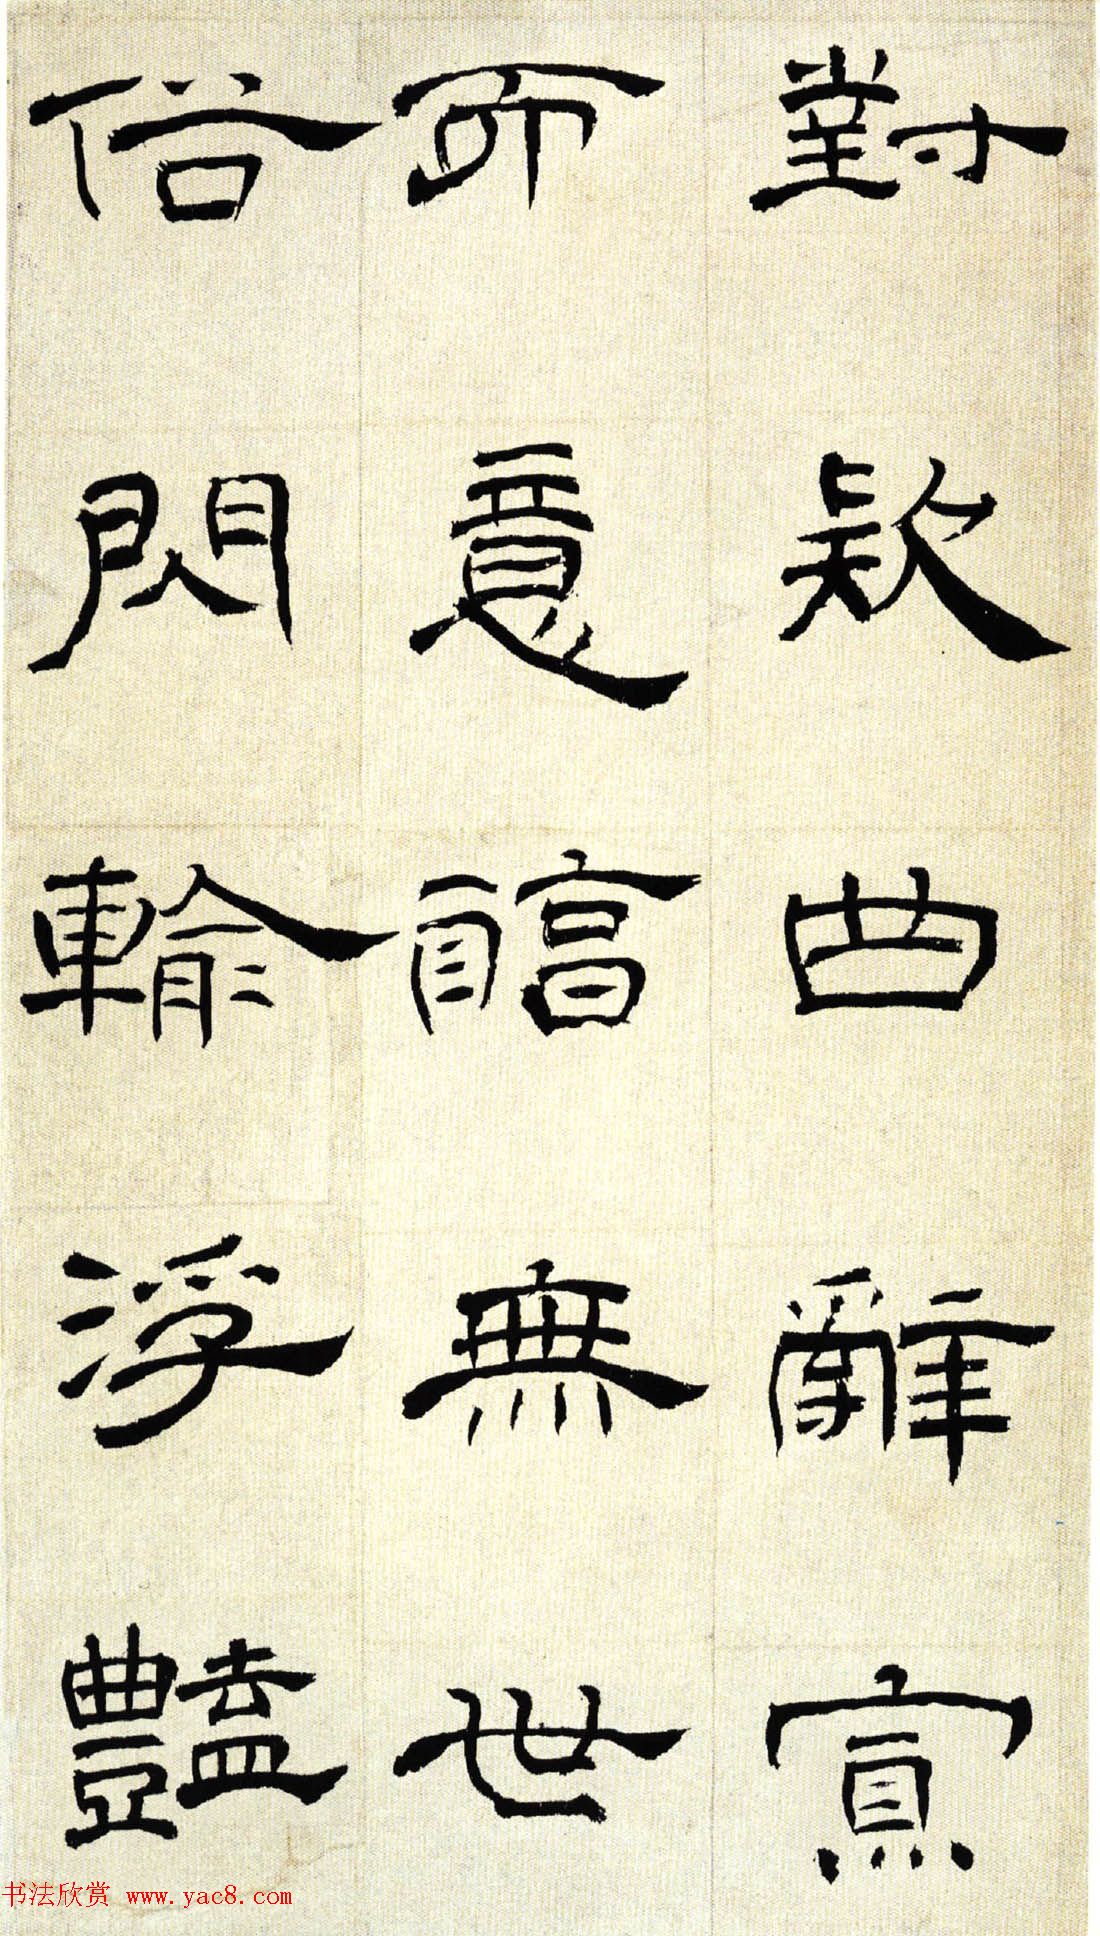 對欵曲辭寡
而意無世
俗閃輸浮豔
书法欣赏 www.yac8.com